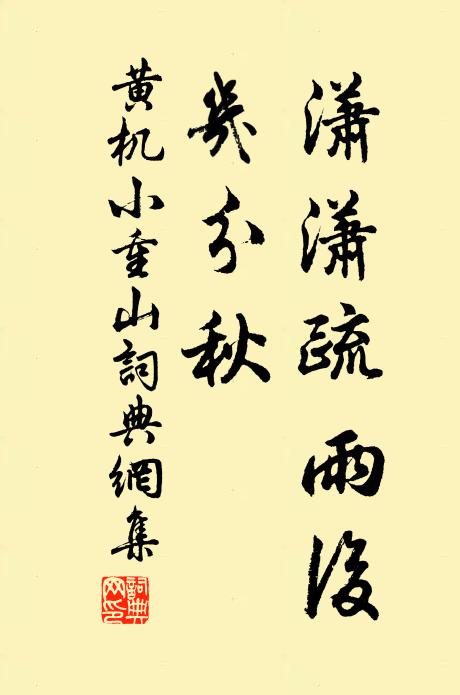 瀟瀟疏雨後
幾分秋
黄机小重山詞典網集
詞典网印